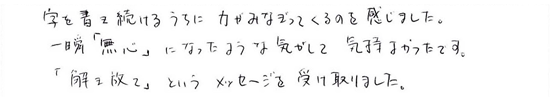 字を書き続けるうちに 力がみなぎってくるのを感じました。
一瞬「無心」になったような気がして 気持よかったです。
「解き放て」という メッセージを 受け取りました。